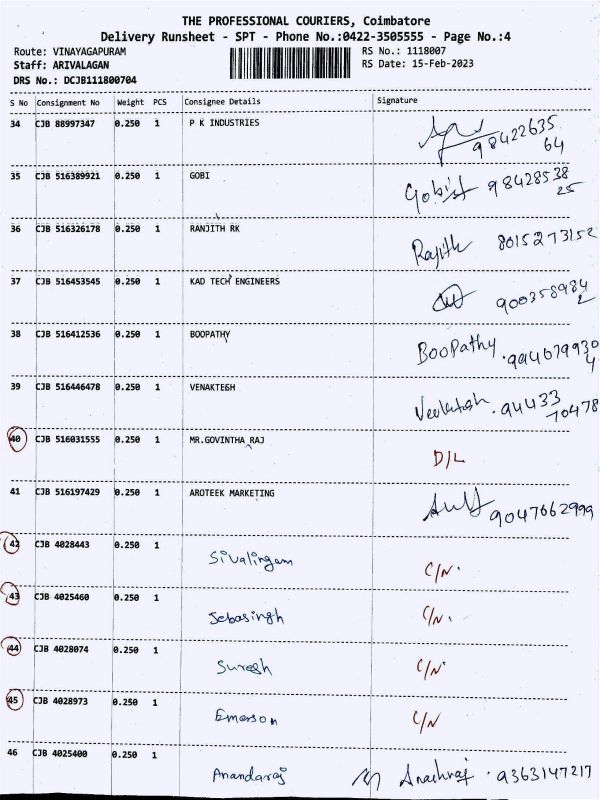 THE PROFESSIONAL COURIERS, Coimbatore
Delivery Runsheet - SPT - Phone No.:0422-3505555 - Page No.:4
Route: VINAYAGAPURAM RS No.: 1118007
Staff: ARIVALAGAN RS Date: 15-Feb-2023
DRS No.: DCJB111800704
S No Consignment No Weight PCS Consignee Details Signature
34 CJB 88997347 0.250 1 P K INDUSTRIES 98422635
64
35 CJB 516389921 0.250 1 GOBI 98428538
25
36 CJB 516326178 0.250 1 RANJITH RK Rajith 8015273152
37 CJB 516453545 0.250 1 KAD TECH ENGINEERS 900358984
2
38 CJB 516412536 0.250 1 BOOPATHY BooPathy .994679930
4
39 CJB 516446478 0.250 1 VENAKTESH .94433
70478
40 CJB 516031555 0.250 1 MR.GOVINTHA RAJ D/L
41 CJB 516197429 0.250 1 AROTEEK MARKETING 9047662999
42 CJB 4028443 0.250 1 Sivalingam C/N.
43 CJB 4025460 0.250 1 Jebasingh C/N.
44 CJB 4028074 0.250 1 Suresh C/N.
45 CJB 4028973 0.250 1 Emerson C/N
46 CJB 4025400 0.250 1 Anandaraj .9363147217